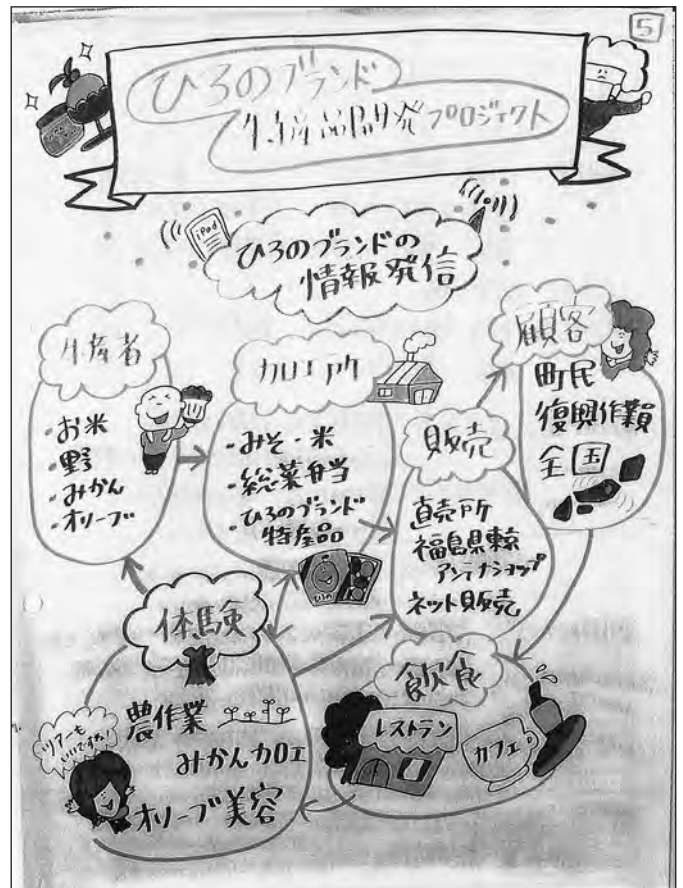 5
ひろのブランド
特産品開発プロジェクト
iPad
ひろのブランドの
情報発信
生産者
・お米
・野
・みかん
・オリーブ
加工所
・みそ・米
・総菜弁当
・ひろのブランド
特産品
販売
直売所
福島県東京
アンテナショップ
ネット販売
顧客
町民
復興作業員
全国
体験
農作業
みかん加工
オリーブ美容
ツアーも
いいですね!
飲食
レストラン
カフェ